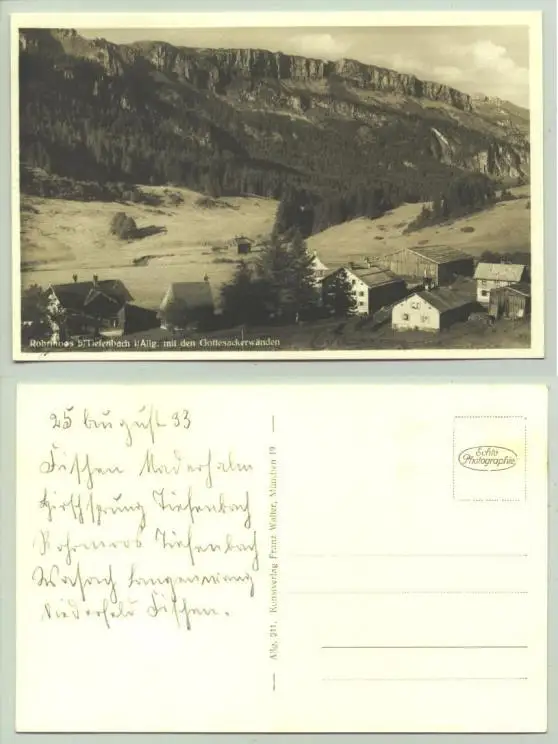 Rohrmoos b/Tiefenbach i/Allg. mit den Gottesackerwänden
25 August 33
Fischen Maderhalm
Hirschsprung Tiefenbach
Rohrmoos Tiefenbach
Wasach Langenwang
Niederfels Fischen.
Allg. 211, Kunstverlag Franz Walter, München 19
Echte
Photographie